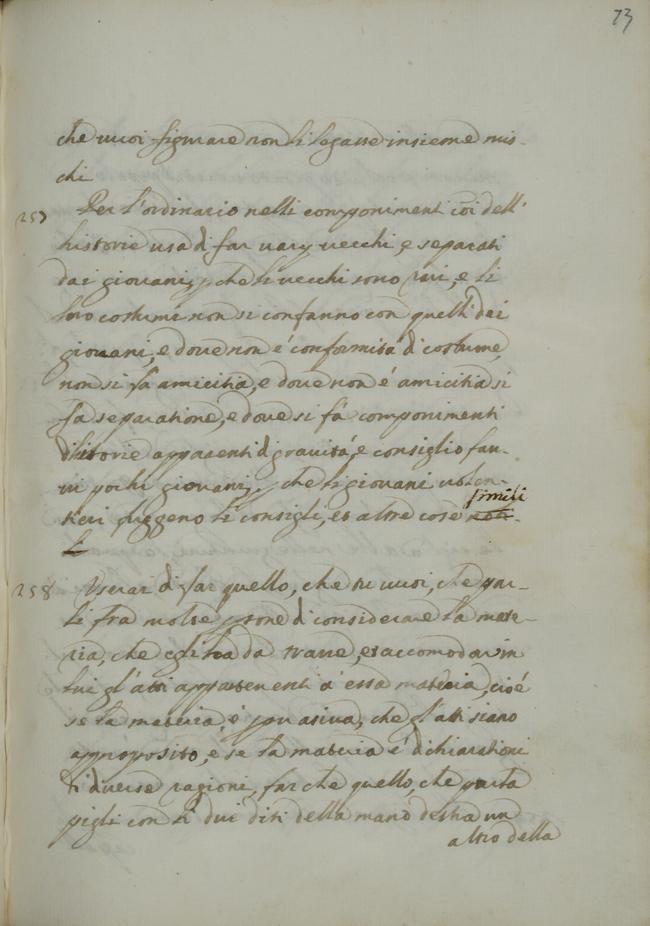 73
che vuoi figurare non si legasse insieme mis-
chi
257 Per l'ordinario nelli componimenti cõi dell'
historie usa di far vary vecchi, e separati
dai giovani, p che li vecchi sono rari, e li
loro costumi non si confanno con quelli dei
giovani, e dove non é conformità di costume,
non si fa amicitia, e dove non é amicitia si
fa separatione, e dove si fà componimenti
d'historie apparenti di gravità, e consiglio fan-
vi pochi giovani, p che li giovani volon-
tieri fuggeno li consigli, et altre cose simili
258 Userai di far quello, che tu vuoi, che par-
li fra molte psone di considerare la mate-
ria, che egli ha da trattare, et accomodar in
lui gl'atti appartenenti a essa materia, cioé
se la materia, é psuasiva, che gl'atti siano
appropositо, e se la materia é di chiarationi
di diverse ragioni, far che quello, che parla
pigli con li dui diti della mano destra un
altro della